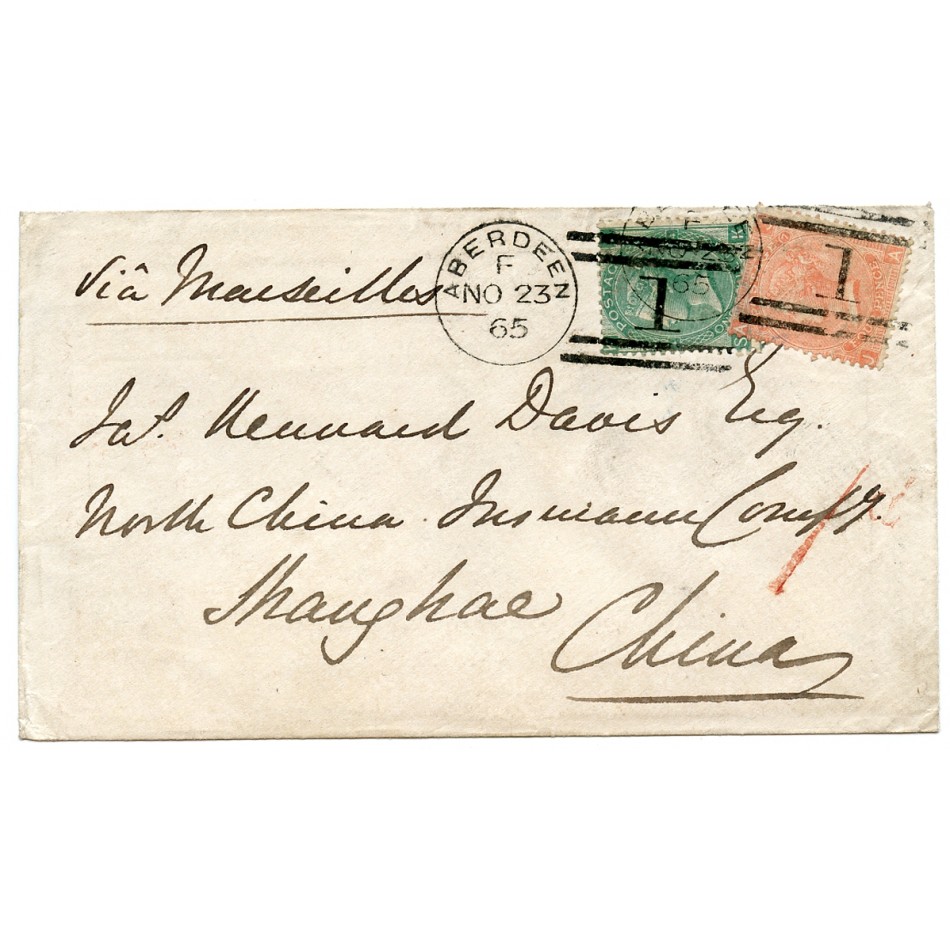 viâ Marseilles
ABERDEEN
F
NO 23
65
1
1
Jas. Kennard Davis Esq.
North China Insurance Compy.
Shanghae
China